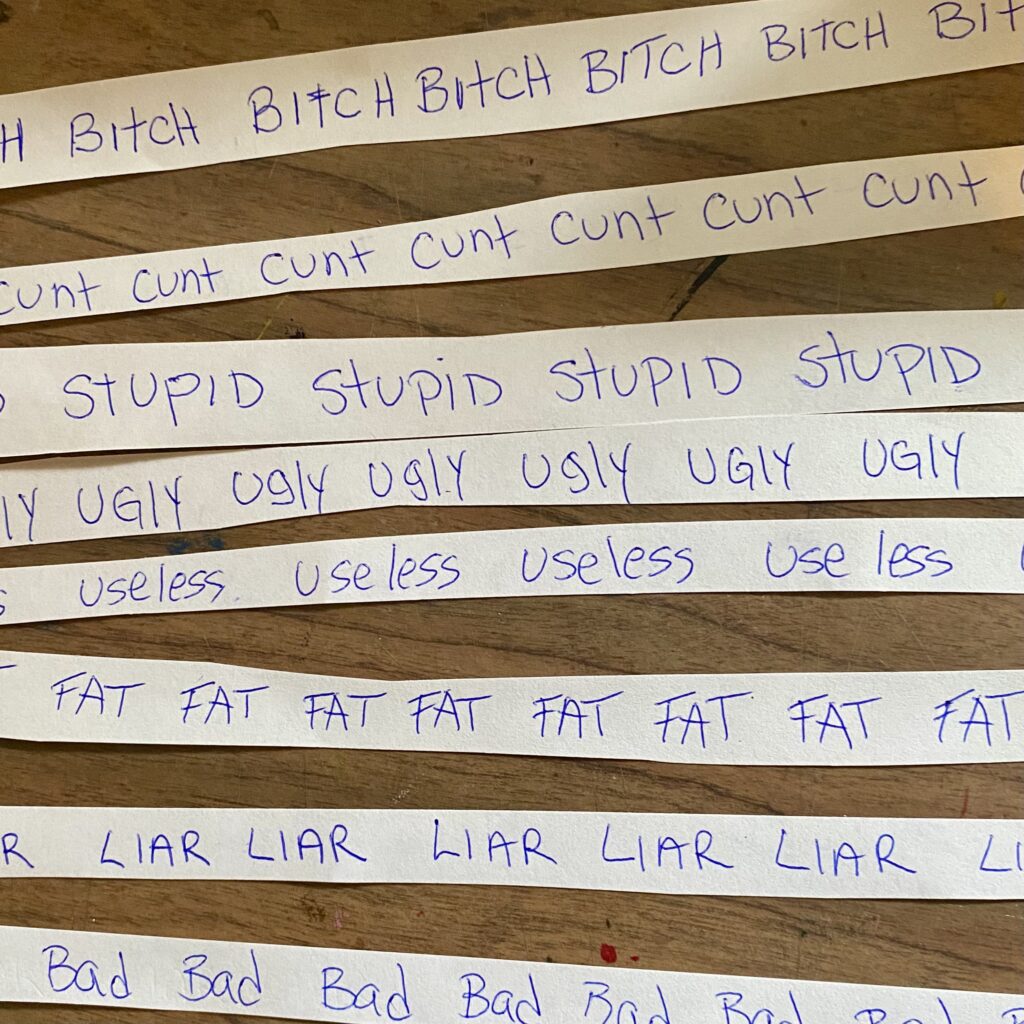 H BitCH BITCH BitCH BITCH BITCH BIT
cunt cunt cunt cunt cunt cunt cunt
STUPID StUPiD StUPID StUPID
LY UGLY UglY UglY UglY UGLY UGLY
s useless. useless useless useless
T FAT FAT FAT FAT FAT FAT FAT FAT
R LIAR LIAR LIAR LIAR LIAR LI
Bad Bad Bad Bad Bad Bad Bad